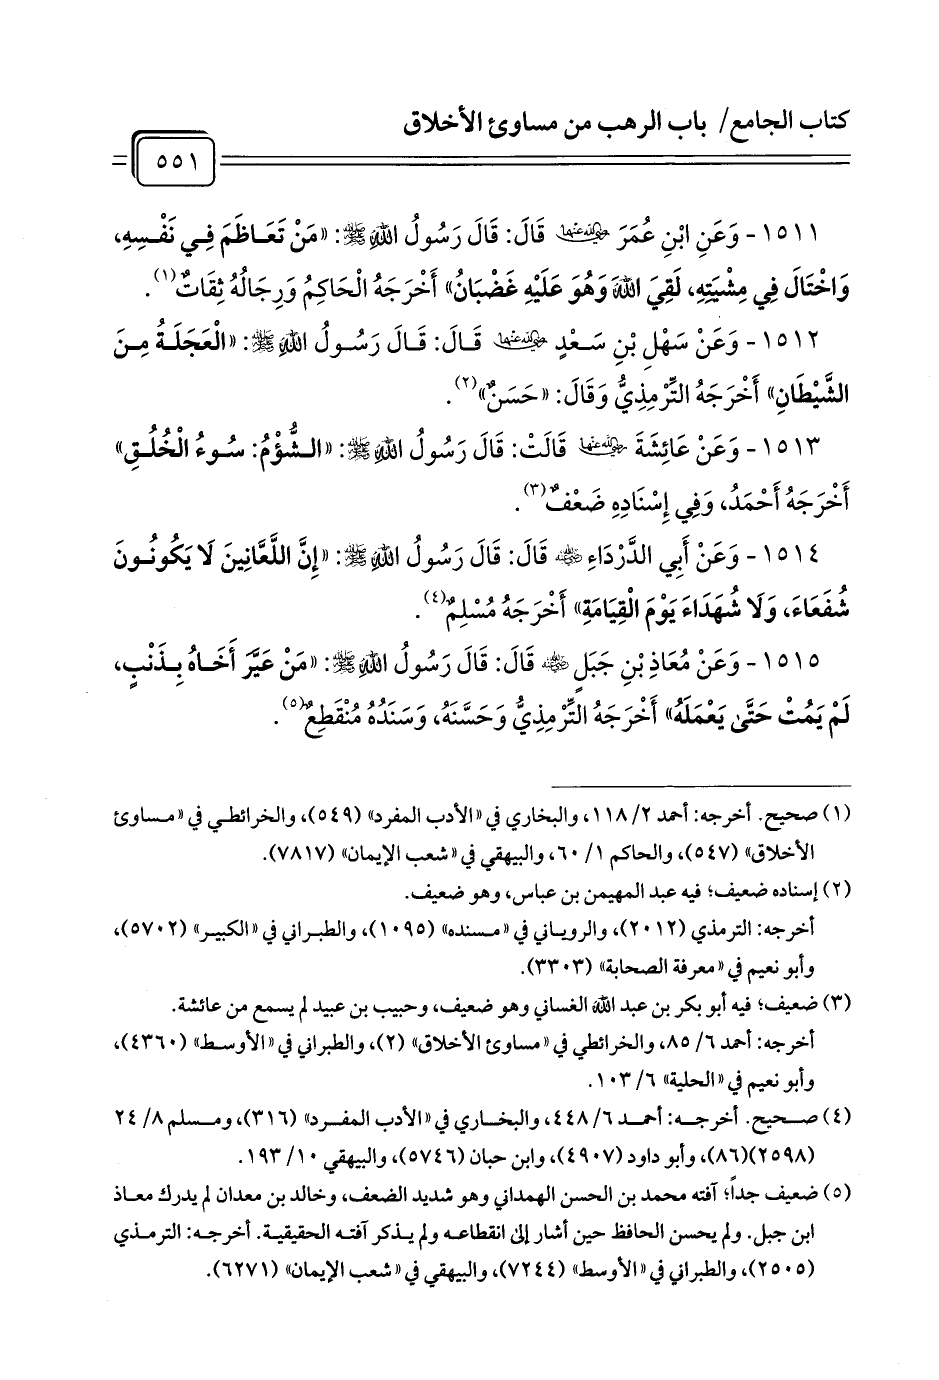 كتاب الجامع/ باب الرهب من مساوئ الأخلاق
٥٥١
١٥١١- وَعَنِ ابْنِ عُمَرَ رضي الله عنهما قَالَ: قَالَ رَسُولُ اللهِ ﷺ: «مَنْ تَعَاظَمَ فِي نَفْسِهِ،
وَاخْتَالَ فِي مِشْيَتِهِ، لَقِيَ اللهَ وَهُوَ عَلَيْهِ غَضْبَانُ» أَخْرَجَهُ الْحَاكِمُ وَرِجَالُهُ ثِقَاتٌ(١).
١٥١٢- وَعَنْ سَهْلِ بْنِ سَعْدٍ رضي الله عنهما قَالَ: قَالَ رَسُولُ اللهِ ﷺ: «الْعَجَلَةُ مِنَ
الشَّيْطَانِ» أَخْرَجَهُ التِّرْمِذِيُّ وَقَالَ: «حَسَنٌ»(٢).
١٥١٣- وَعَنْ عَائِشَةَ رضي الله عنها قَالَتْ: قَالَ رَسُولُ اللهِ ﷺ: «الشُّؤْمُ: سُوءُ الْخُلُقِ»
أَخْرَجَهُ أَحْمَدُ، وَفِي إِسْنَادِهِ ضَعْفٌ(٣).
١٥١٤- وَعَنْ أَبِي الدَّرْدَاءِ رضي الله عنه قَالَ: قَالَ رَسُولُ اللهِ ﷺ: «إِنَّ اللَّعَّانِينَ لَا يَكُونُونَ
شُفَعَاءَ، وَلَا شُهَدَاءَ يَوْمَ الْقِيَامَةِ» أَخْرَجَهُ مُسْلِمٌ(٤).
١٥١٥- وَعَنْ مُعَاذِ بْنِ جَبَلٍ رضي الله عنه قَالَ: قَالَ رَسُولُ اللهِ ﷺ: «مَنْ عَيَّرَ أَخَاهُ بِذَنْبٍ،
لَمْ يَمُتْ حَتَّى يَعْمَلَهُ» أَخْرَجَهُ التِّرْمِذِيُّ وَحَسَّنَهُ، وَسَنَدُهُ مُنْقَطِعٌ(٥).
(١) صحيح. أخرجه: أحمد ٢/ ١١٨، والبخاري في «الأدب المفرد» (٥٤٩)، والخرائطي في «مساوئ
الأخلاق» (٥٤٧)، والحاكم ١/ ٦٠، والبيهقي في «شعب الإيمان» (٧٨١٧).
(٢) إسناده ضعيف؛ فيه عبد المهيمن بن عباس، وهو ضعيف.
أخرجه: الترمذي (٢٠١٢)، والروياني في «مسنده» (١٠٩٥)، والطبراني في «الكبير» (٥٧٠٢)،
وأبو نعيم في «معرفة الصحابة» (٣٣٠٣).
(٣) ضعيف؛ فيه أبو بكر بن عبد الله الغساني وهو ضعيف، وحبيب بن عبيد لم يسمع من عائشة.
أخرجه: أحمد ٦/ ٨٥، والخرائطي في «مساوئ الأخلاق» (٢)، والطبراني في «الأوسط» (٤٣٦٠)،
وأبو نعيم في «الحلية» ٦/ ١٠٣.
(٤) صحيح. أخرجه: أحمد ٦/ ٤٤٨، والبخاري في «الأدب المفرد» (٣١٦)، ومسلم ٨/ ٢٤
(٢٥٩٨)(٨٦)، وأبو داود (٤٩٠٧)، وابن حبان (٥٧٤٦)، والبيهقي ١٠/ ١٩٣.
(٥) ضعيف جداً؛ آفته محمد بن الحسن الهمداني وهو شديد الضعف، وخالد بن معدان لم يدرك معاذ
ابن جبل. ولم يحسن الحافظ حين أشار إلى انقطاعه ولم يذكر آفته الحقيقية. أخرجه: الترمذي
(٢٥٠٥)، والطبراني في «الأوسط» (٧٢٤٤)، والبيهقي في «شعب الإيمان» (٦٢٧١).